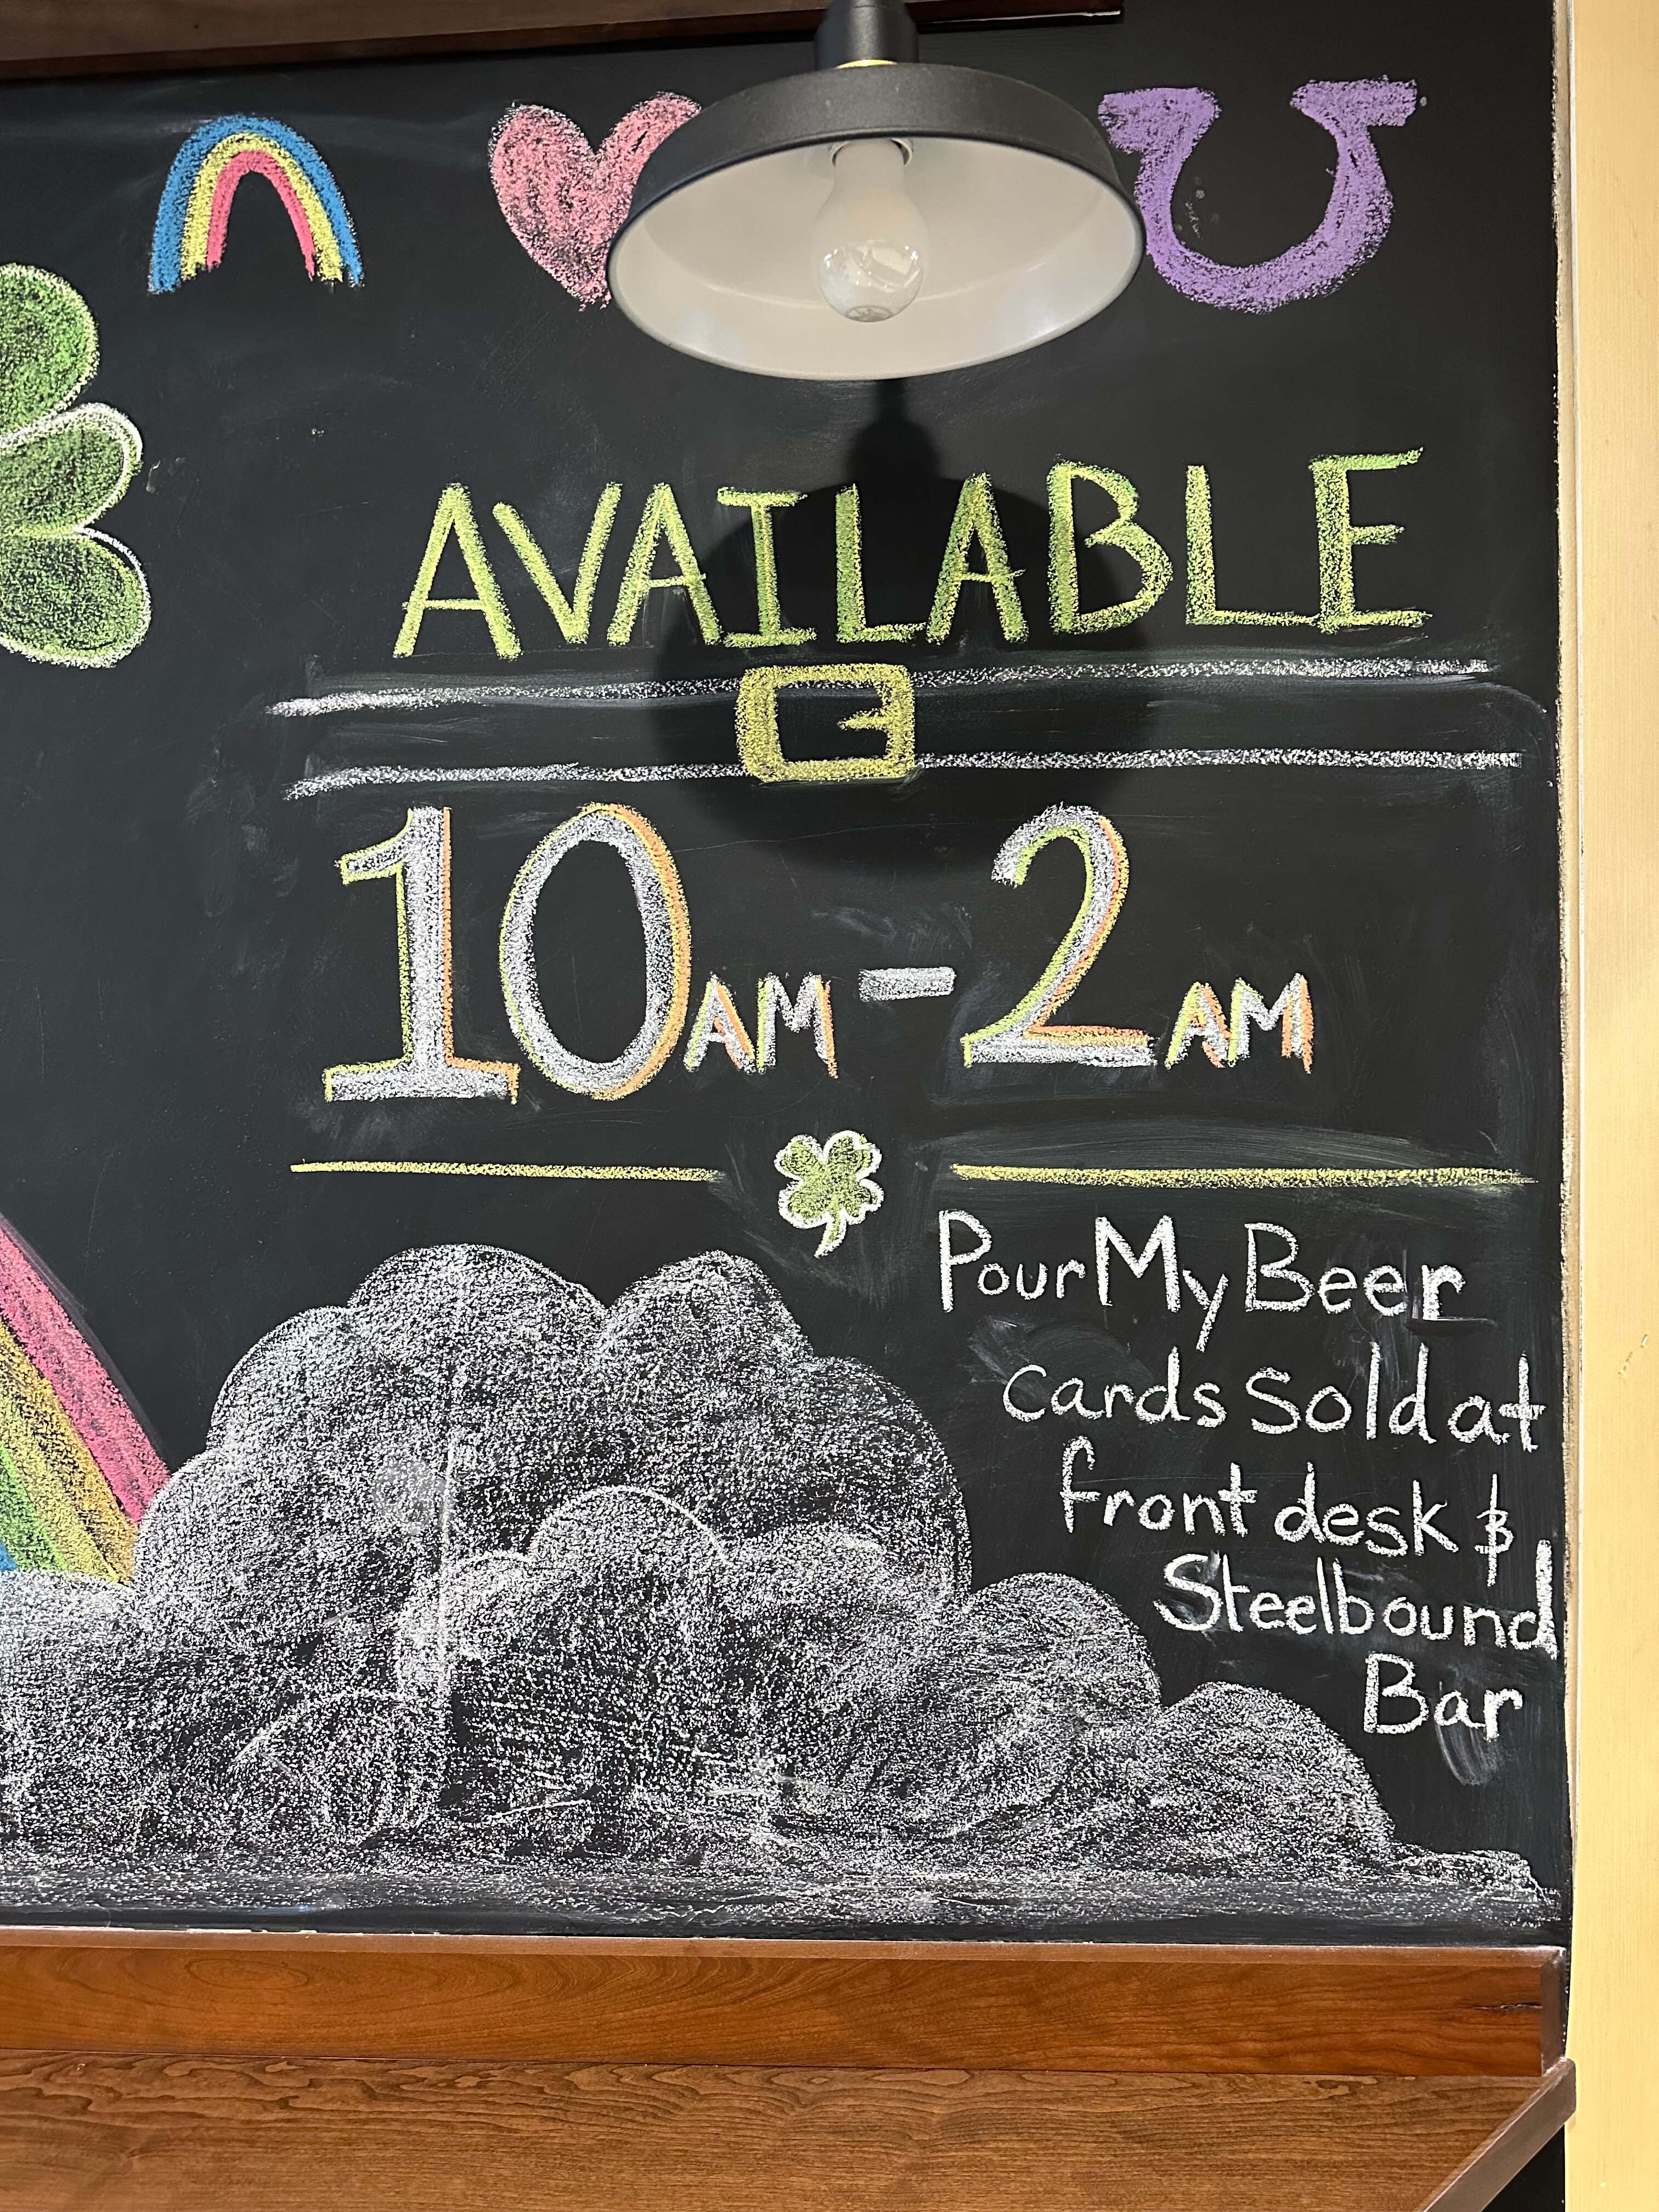 AVAILABLE
10AM-2AM
PourMyBeer
cards sold at
front desk &
Steelbound
Bar